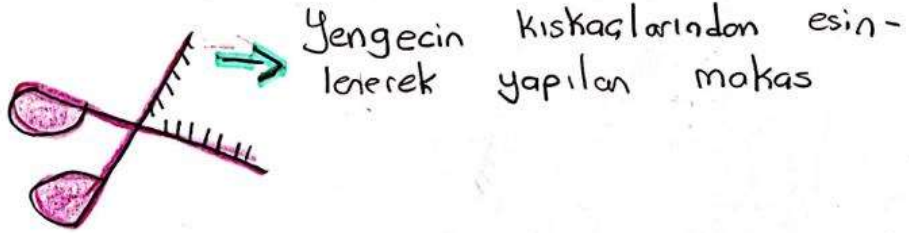 Yengecin kıskaçlarından esin-
lenerek yapılan makas